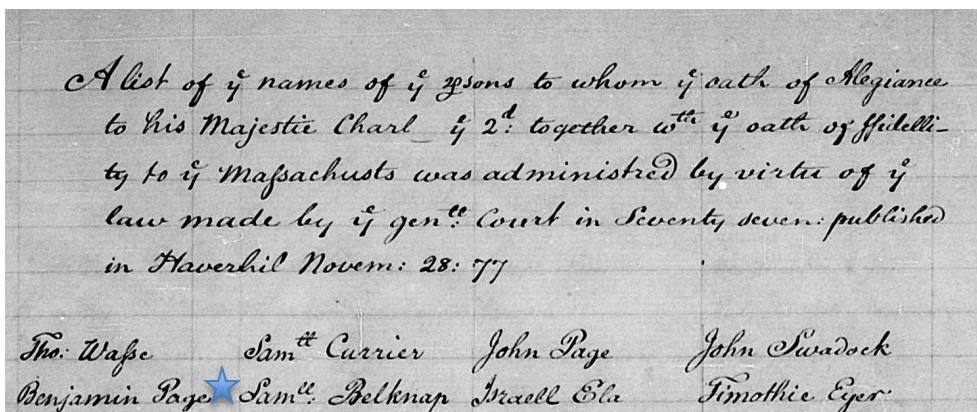 A list of yͤ names of yͤ ꝑsons to whom yͤ oath of Alegiance
to his Majestie Charl yͤ 2ᵈ: together wᵗʰ yͤ oath of ffidelli-
ty to yͤ Maſsachusts was administred by virtu of yͤ
law made by yͤ genˡˡ: Court in Seventy seven: published
in Haverhil Novem: 28: 77
Tho: Waſse Samˡˡ Currier John Page John Swadock
Benjamin Page Samˡˡ: Belknap Israell Ela Timothie Eyer